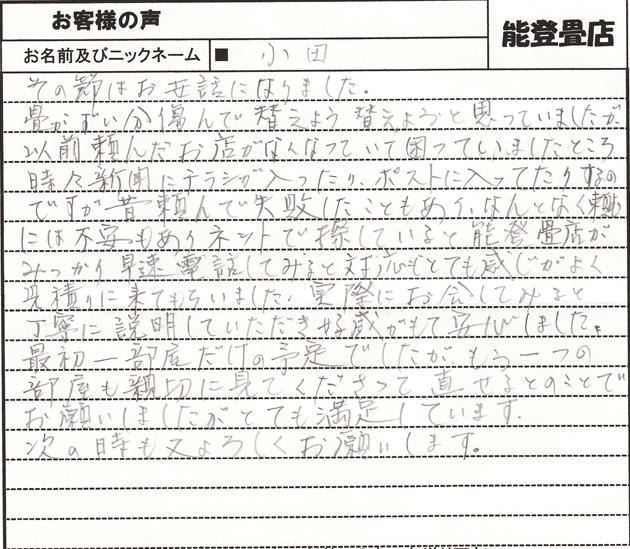 お客様の声
能登畳店
お名前及びニックネーム ■ 小田
その節はお世話になりました。
畳がずい分傷んで替えよう替えようと思っていましたが、
以前頼んだお店がなくなっていて困っていましたところ
時々新聞にチラシが入ったり、ポストに入ってたりするの
ですが昔頼んで失敗したこともあり、なんとなく頼む
には不安もありネットで探していると能登畳店が
みつかり早速電話してみると対応もとても感じがよく
見積りに来てもらいました。実際にお会してみると
丁寧に説明していただき好感がもて安心しました。
最初一部屋だけの予定でしたが、もう一つの
部屋も親切に見てくださって直せるとのことで
お願いしましたがとても満足しています。
次の時も又よろしくお願いします。